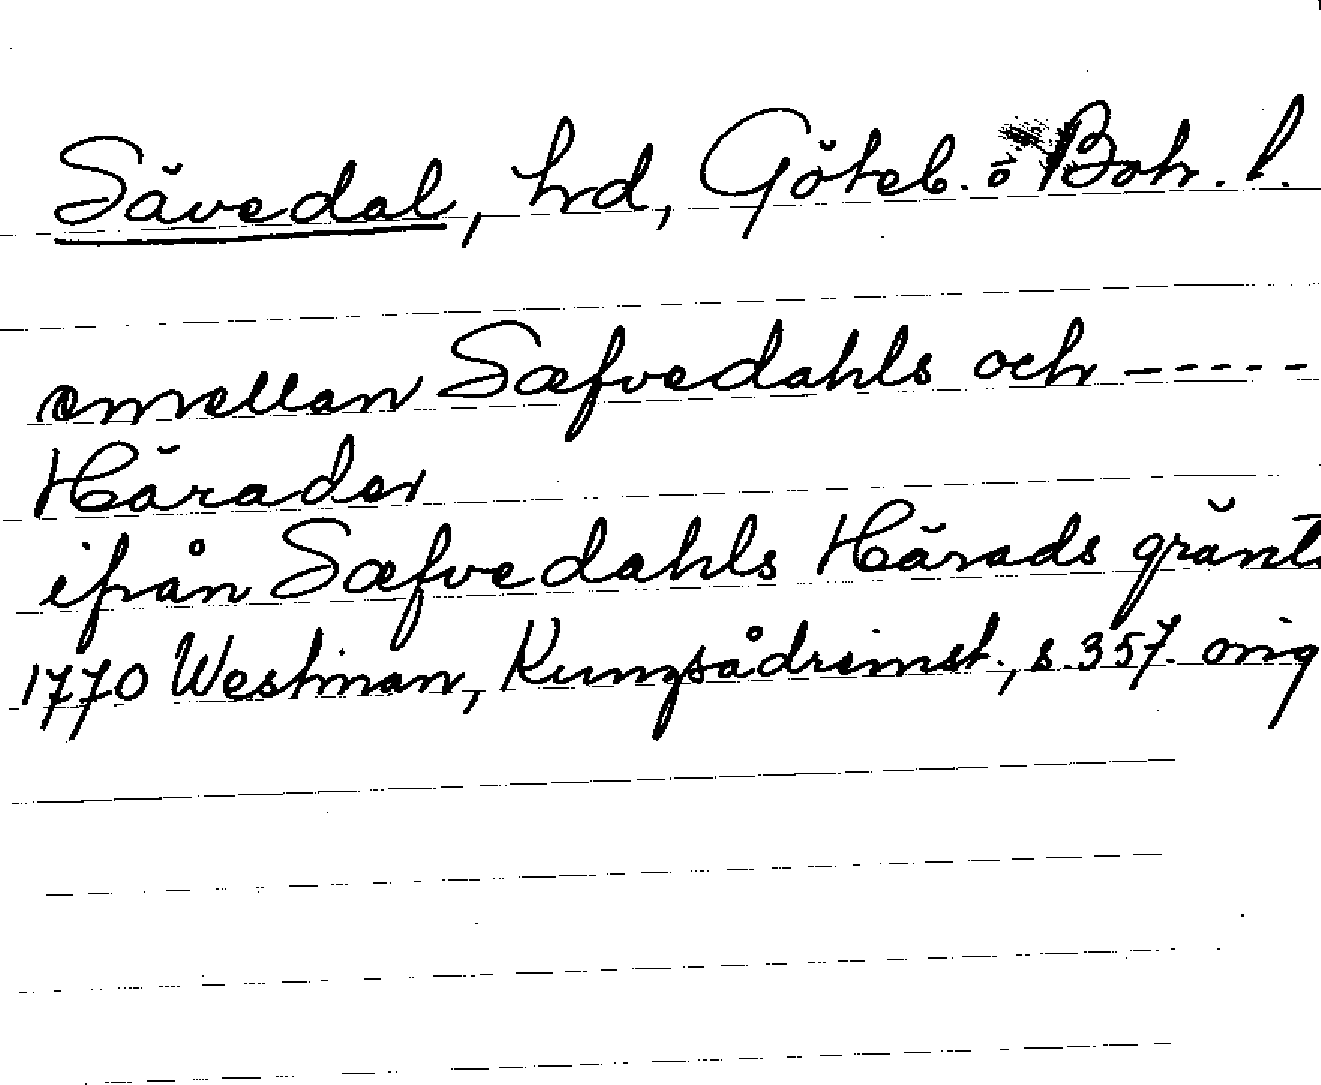 Sävedal, hd, Göteb. o Boh. l.
emellan Sæfvedahls och -----
Härader
ifrån Sæfvedahls Härads gränts
1770 Westman, Kungsådreinst., s 357. orig